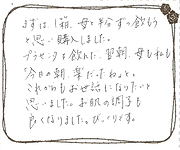 まずは、1箱、母と半分ずつ飲もう
と思い購入しました。
プラセンタを飲んだ、翌朝、母も私も
「今日の朝、楽だったね」と。
これからもお世話になりたいと
思いました。お肌の調子も
良くなりました。びっくりです。